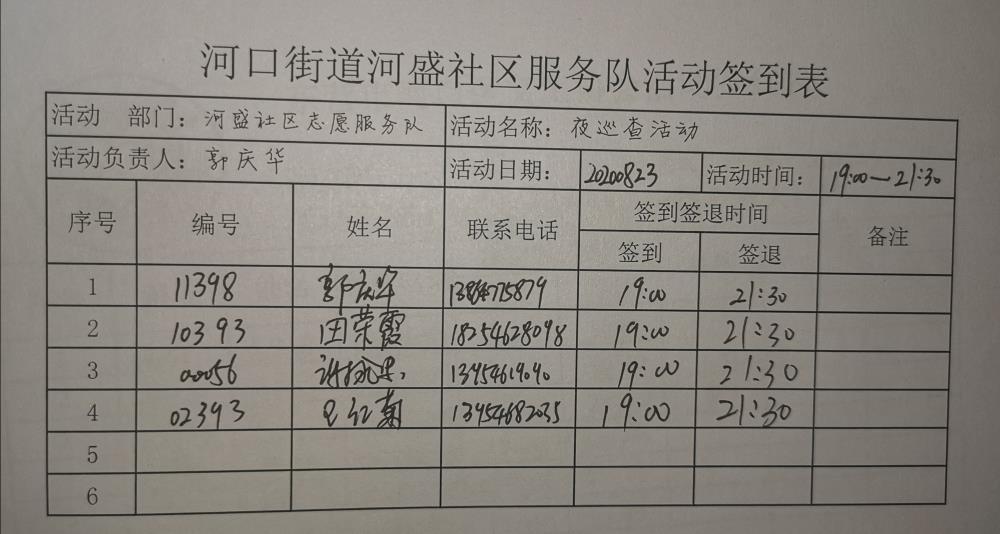 河口街道河盛社区服务队活动签到表
活动 部门：河盛社区志愿服务队 活动名称：夜巡查活动
活动负责人：郭庆华 活动日期： 20200823 活动时间： 19:00—21:30
序号 编号 姓名 联系电话 签到签退时间 备注
签到 签退
1 11398 郭庆华 19:00 21:30
2 10393 田荣霞 18254628098 19:00 21:30
3 00056 19:00 21:30
4 02393 13954682035 19:00 21:30
5
6